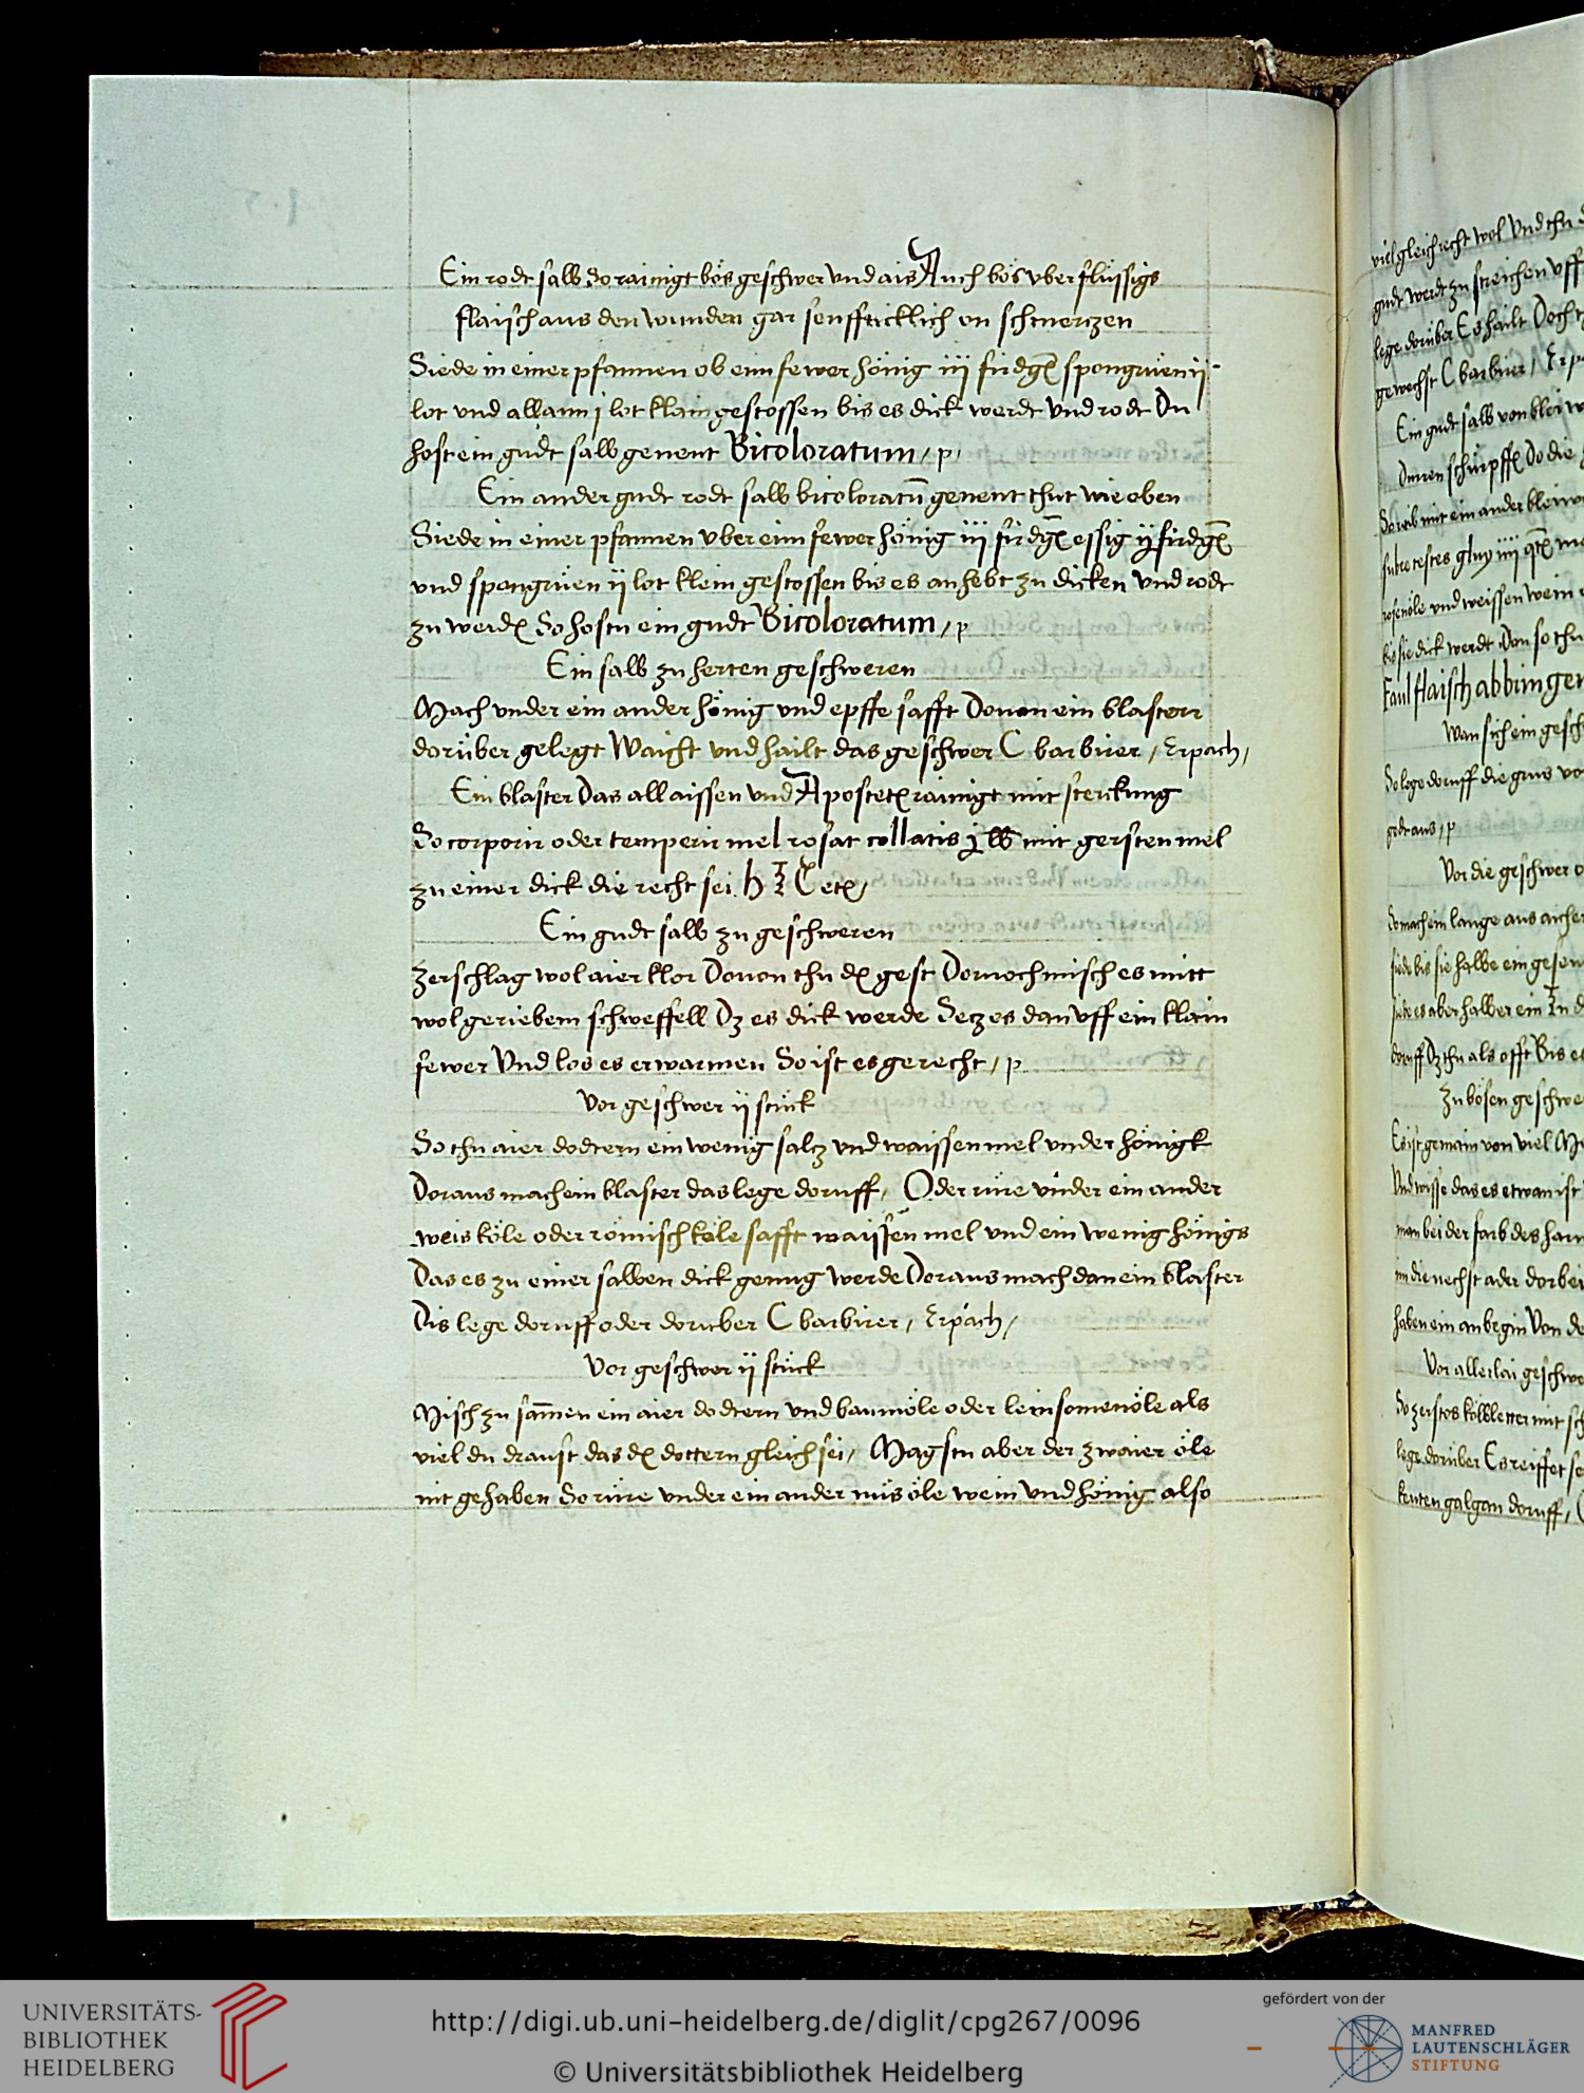 Ein rodt salb do rainigt bös geschwer vnd ais Auch bös vberflüssigs
flaisch aus den wunden gar senffticklich on schmerczen
Siede in einer pfannen ob eim fewer hönig iij firdg̃ spongrüen ij
lot vnd allaun j lot klain gestossen bis es dick werdt vnd rodt Du
host ein gudt salb genent Bicoloratum / p /
Ein ander gudt rodt salb bicoloratū genent thut wie oben
Siede in einer pfannen vber eim fewer hönig iij firdg̃ essig ij firdg̃
vnd spongrüen ij lot klein gestossen bis es anhebt zu dicken vnd rodt
zu werdn̄ So hostu ein gudt Bicoloratum / p
Ein salb zu herten geschweren
Mach vnder ein ander hönig vnd epffe safft Douon ein blaster
dorüber gelegt Waicht vnd hailt das geschwer C barbirer / Erpach /
Ein blaster Das all aissen vnd Apostetn̄ rainigt mit sterckung
So corporir oder temperir mel rosat collatis j lb mit gersten mel
zu einer dick die recht sei
Ein gudt salb zu geschweren
Zerschlag wol aier klor Douon thu dn̄ gest Dornoch misch es mitt
wol geriebem schweffell Dz es dick werde Secz es dan vff ein klain
fewer Vnd los es erwarmen So ist es gerecht / p
Vor geschwer ij stück
So thu aier dodtern ein wenig salcz vnd waissen mel vnder hönigk
Doraus mach ein blaster das lege doruff / Oder rüre vnder ein ander
weis köle oder römisch köle safft waissen mel vnd ein wenig hönigs
Das es zu einer salben dick genug werde Doraus mach dan ein blaster
Dis lege doruff oder doruber C barbirer / Erpach /
Vor geschwer ij stück
Misch zu samen ein aier dodtern vnd baumöle oder leinsomenöle als
viel du draust das dn̄ dottern gleich sei / Magstu aber der zwaier öle
nit gehaben So rüre vnder ein ander nüs öle wein vnd hönig also
viel gleich recht wol Vnd thu
gudt werdt zu streichen vff
lege dorüber Es hailt Doch
gewechst C barbirer / Erp
Ein gudt salb von blei w
Do die
So reib mit ein ander bleiw
rosenöle vnd weissen wein
bis sie dick werdt Dan so thu
Faul flaisch abbringen
Wan sich ein gesch
So lege doruff die grus vo
gedt aus / p
Vor die geschwer
So mach ein lauge aus aiche
siede bis sie halbe ein gesen
siede es aber halber ein
doruff Dz thu als offt Bis es
Zu bösen geschwe
Es ist gemain von viel
Vnd wisse das es etwan ist
man bei der farb des harn
in die nechst ader dorbei
haben ein anbegin Von de
Vor allerlai geschwe
So zerstos kölbletter mit
lege dorüber Es reiffet
galgan doruff /
UNIVERSITÄTS-
BIBLIOTHEK
HEIDELBERG
http://digi.ub.uni-heidelberg.de/diglit/cpg267/0096
© Universitätsbibliothek Heidelberg
gefördert von der
MANFRED
LAUTENSCHLÄGER
STIFTUNG